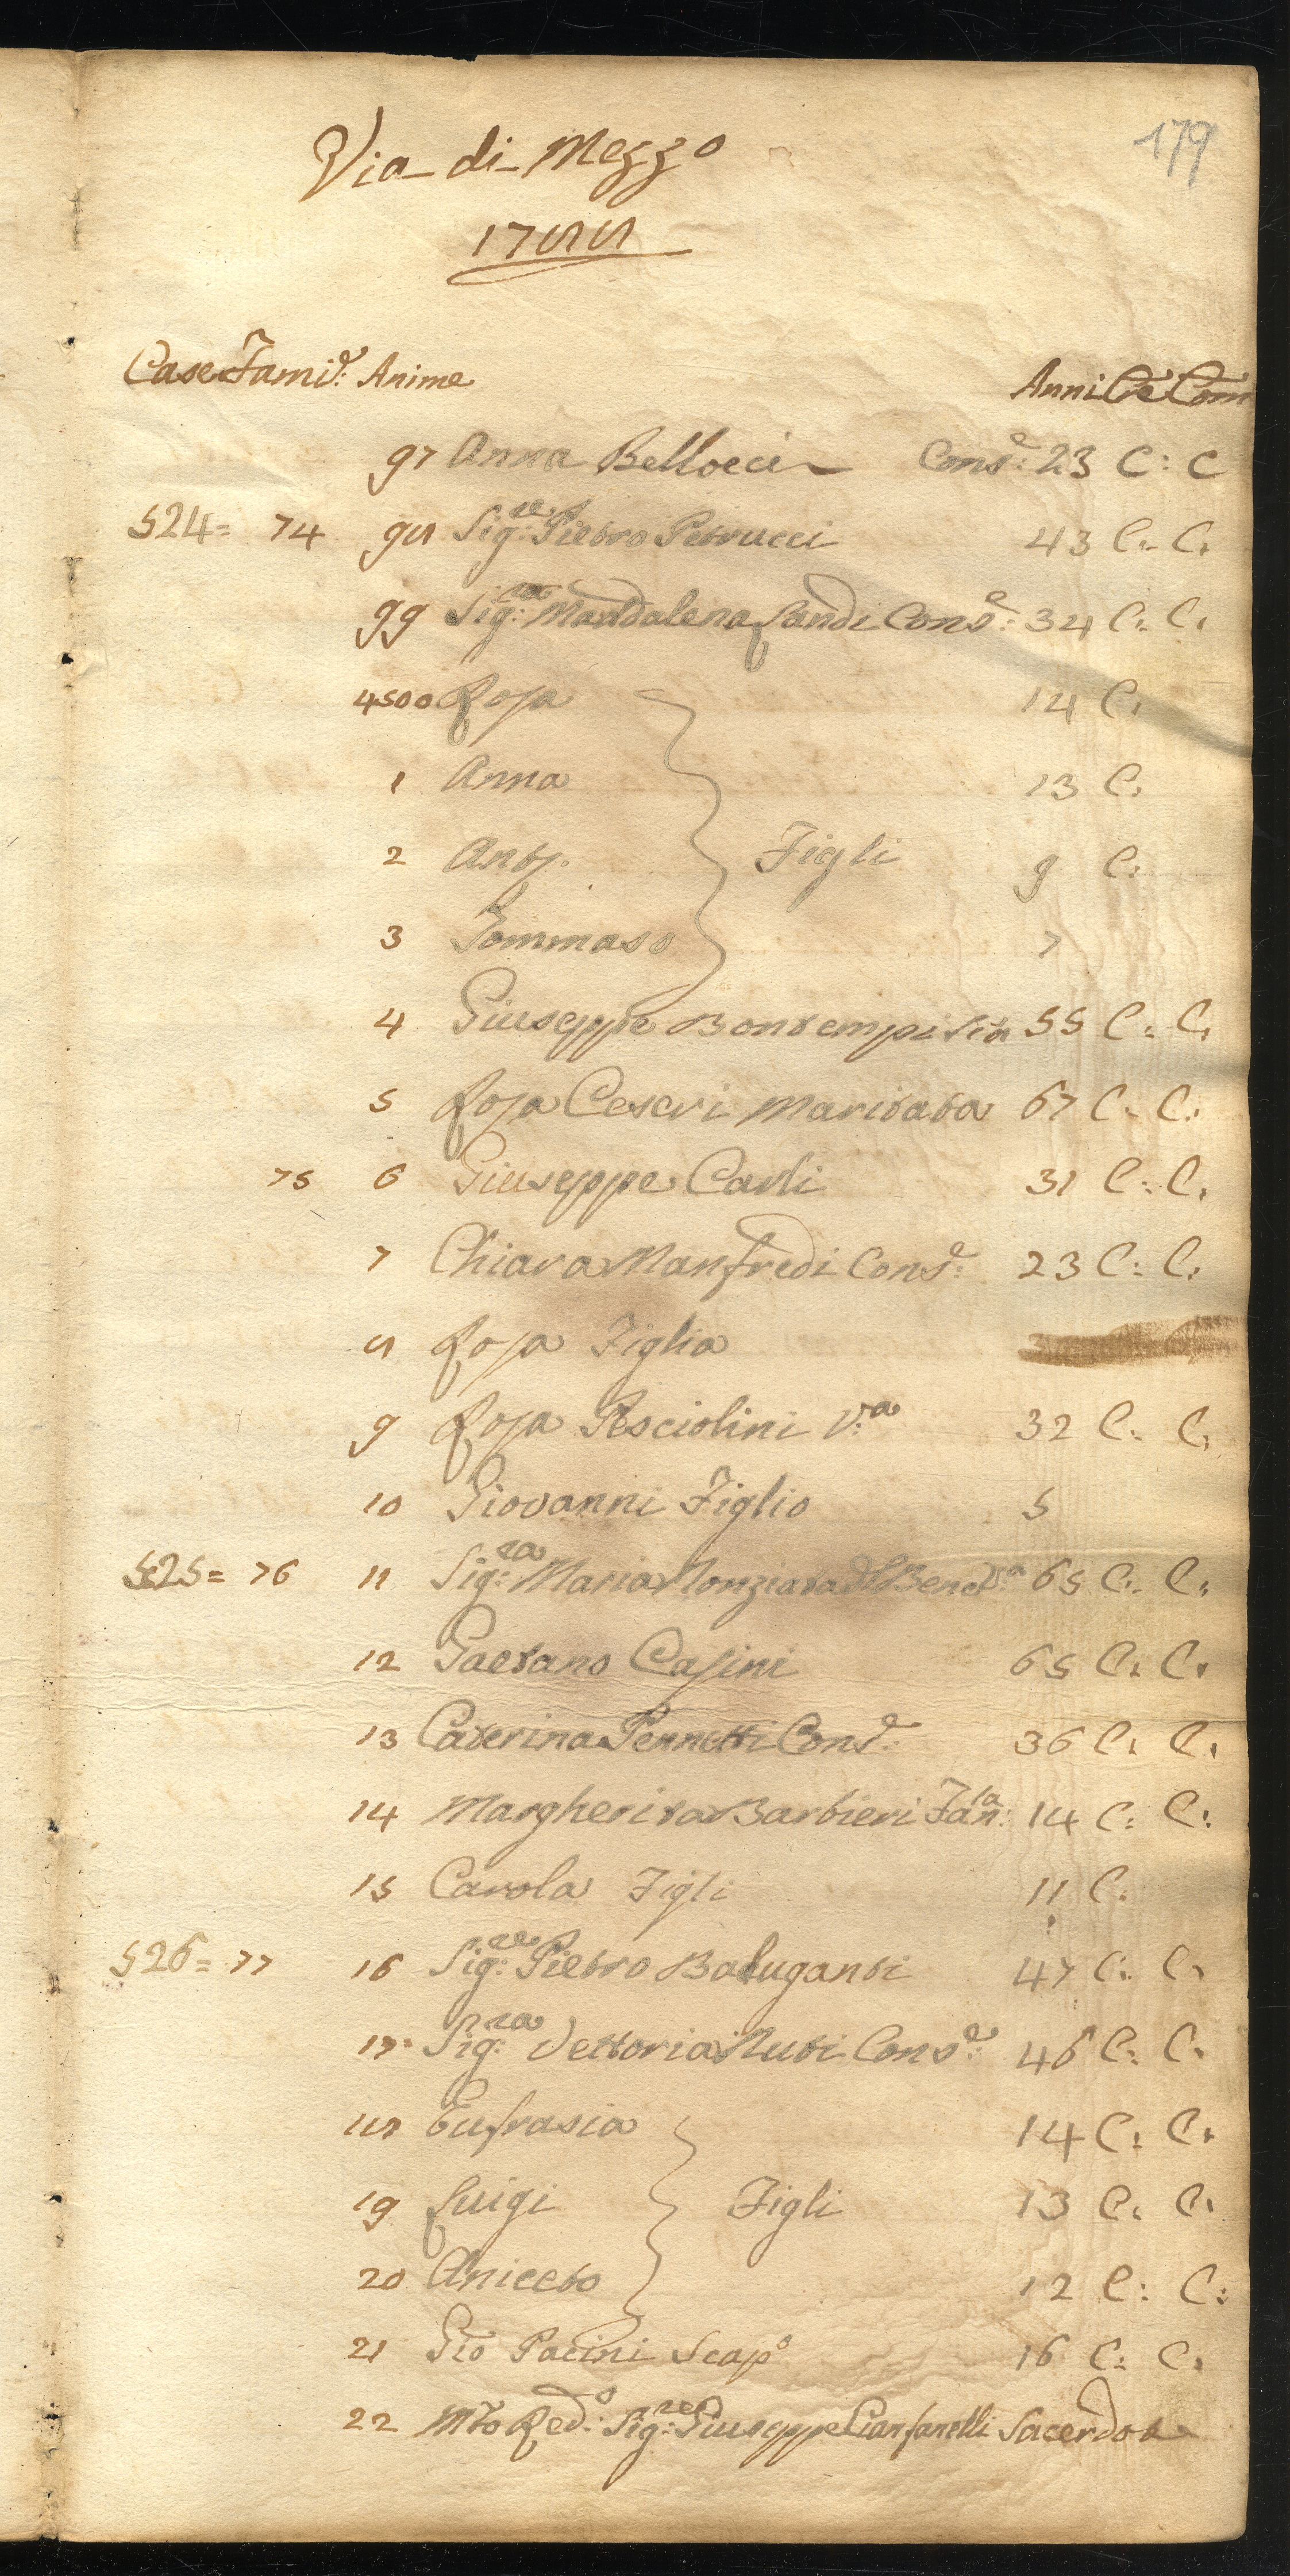 179
Via di Mezzo
1788
Case Fami.e: Anime Anni Cre Com
97 Anna Bellocci Cons.e: 23 C: C
524= 74 98 Sig.re: Pietro Petrucci 43 C: C:
99 Sig.ra: Maddalena Landi Cons.e: 34 C: C:
4500 Rosa 14 C:
1 Anna 13 C:
2 Ant.. Figli 9 C:
3 Tommaso 7
4 Giuseppe Bontempi 55 C: C:
5 Rosa Ceseri Maritata 67 C: C:
75 6 Giuseppe Carli 31 C: C:
7 Chiara Manfredi Cons.e: 23 C: C:
8 Rosa Figlia
9 Rosa Pesciolini V.a: 32 C: C:
10 Giovanni Figlio 5
525= 76 11 Sig.ra: Maria Nunziata 65 C: C:
12 Gaetano Casini 65 C: C:
13 Caterina Pennetti Cons.e: 36 C: C:
14 Margherita Barbieri Fan.la: 14 C: C:
15 Carola Figli 11 C:
526= 77 16 Sig.re: Pietro Baluganti 47 C: C:
17 Sig.ra: Vettoria Nuti Cons.e: 46 C: C:
18 Eufrasia 14 C: C:
19 Luigi Figli 13 C: C:
20 Aniceto 12 C: C:
21 Gio Pacini Scap.o 16 C: C:
22 Mto Red.o: Sig.re: Giuseppe Cianfanelli Sacerdote